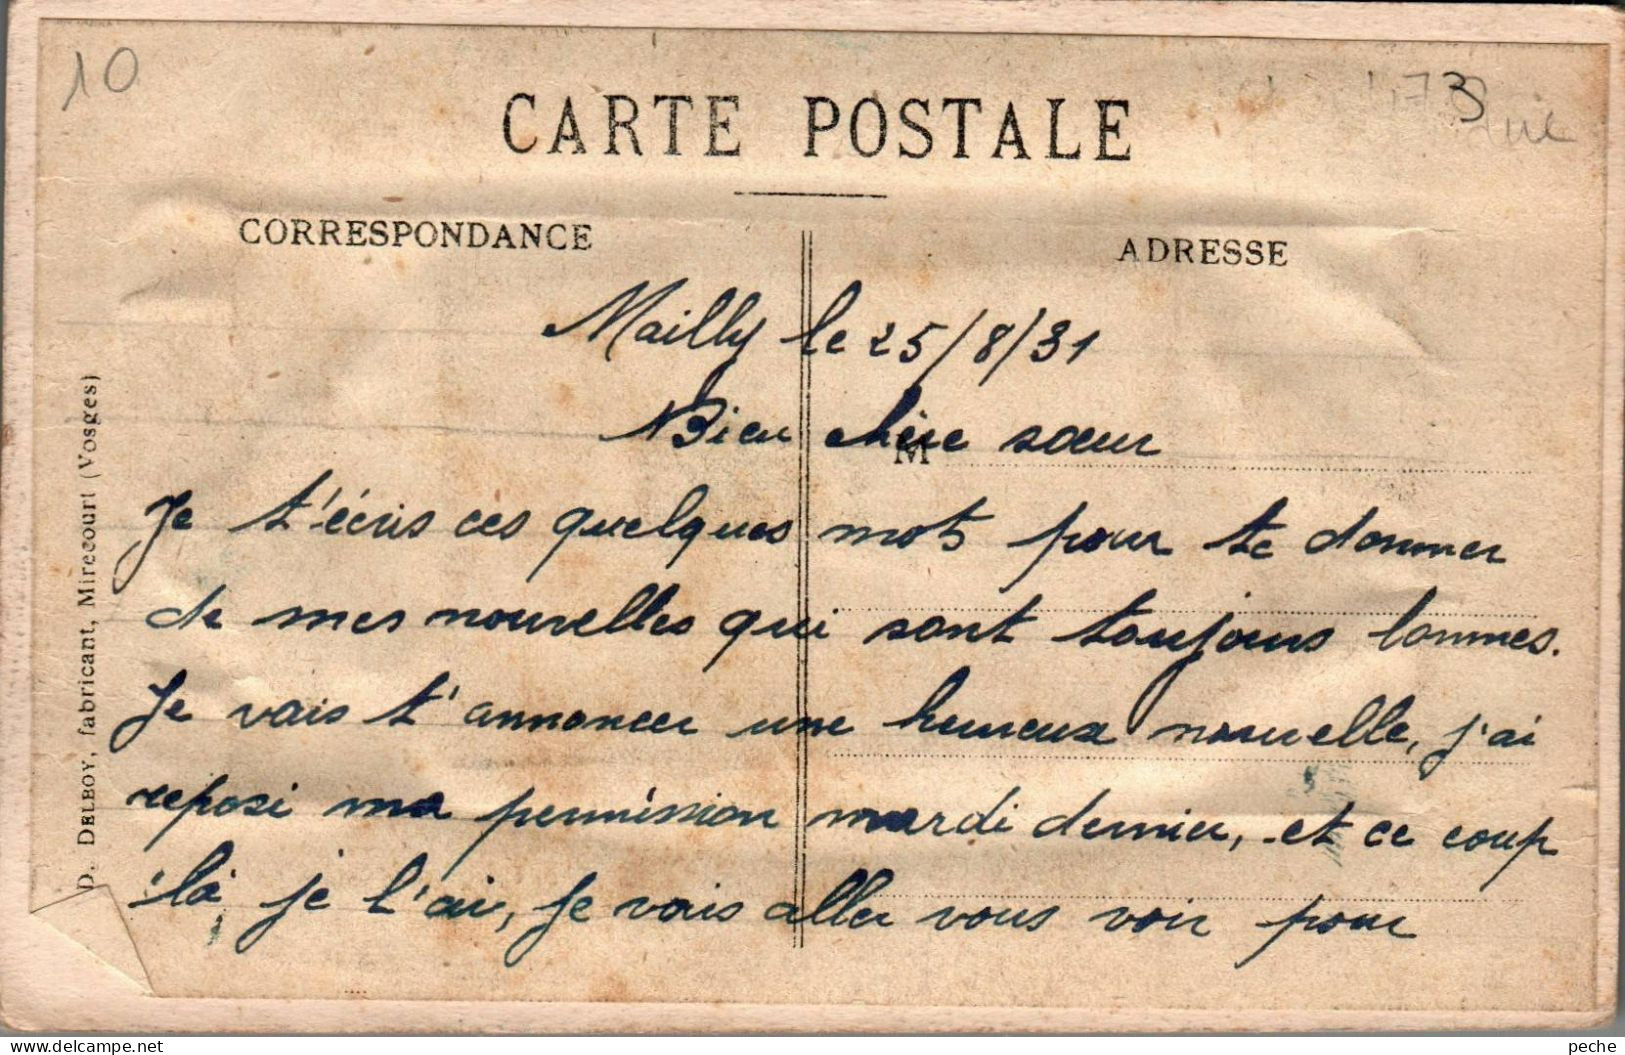 10
CARTE POSTALE
CORRESPONDANCE
ADRESSE
Mailly le 25/8/31
Bien chère sœur
M
Je t'écris ces quelques mots pour te donner
de mes nouvelles qui sont toujours bonnes.
Je vais t'annoncer une heureux nouvelle, j'ai
reposé ma permission mardi dernier, et ce coup
là je l'ai, je vais aller vous voir pour
D. DELBOY, fabricant, Mirecourt (Vosges)
peche